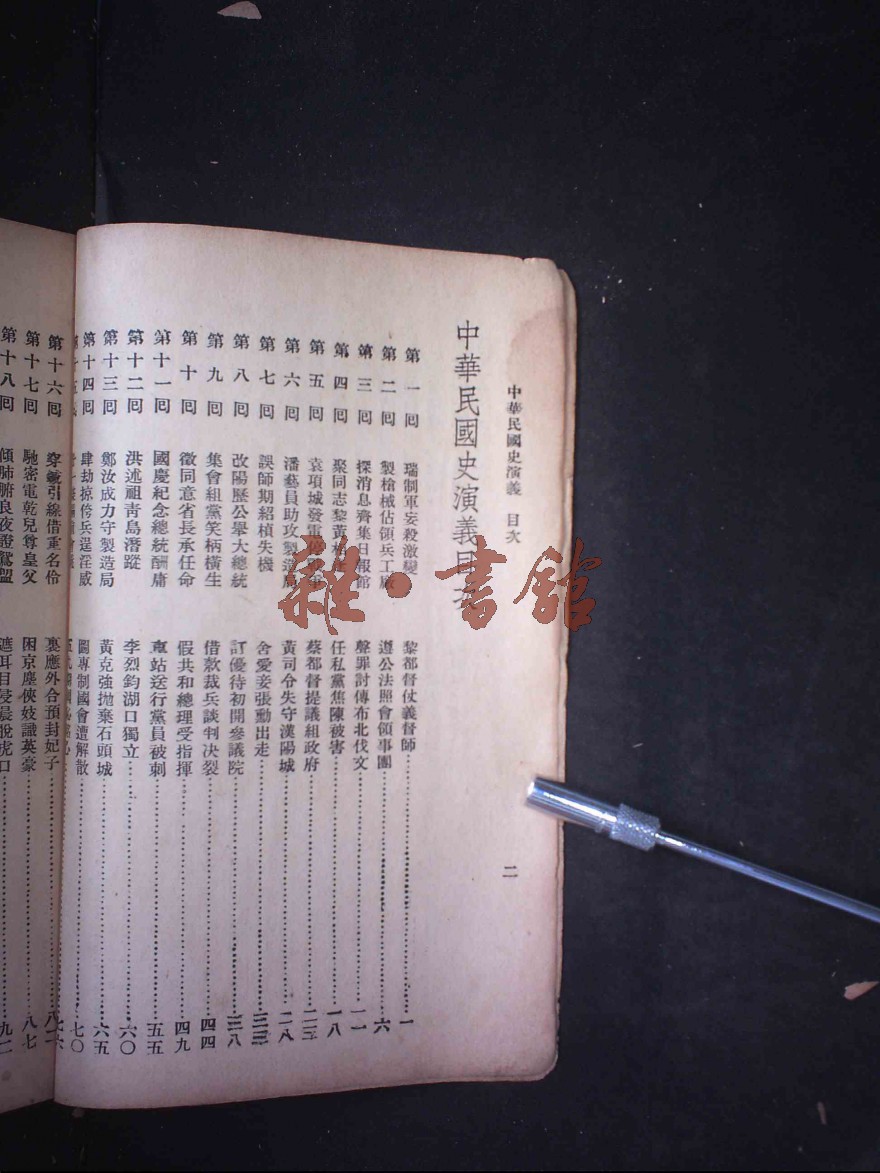 中華民國史演義 目次
二
中華民國史演義目次
第一回 瑞制軍妄殺激變 黎都督仗義督師 一
第二回 製槍械佔領兵工廠 遵公法照會領事團 六
第三回 探消息齊集日報館 聲罪討傳布北伐文 一一
第四回 聚同志黎黃 任私黨焦陳被害 一八
第五回 袁項城發電停戰爭 蔡都督提議組政府 二三
第六回 潘藝員助攻製造局 黃司令失守漢陽城 二八
第七回 誤師期紹楨失機 舍愛妾張勳出走 三三
第八回 改陽歷公舉大總統 訂優待初開參議院 三八
第九回 集會組黨笑柄橫生 借款裁兵談判決裂 四四
第十回 徵同意省長承任命 假共和總理受指揮 四九
第十一回 國慶紀念總統酬庸 車站送行黨員被刺 五五
第十二回 洪述祖青島潛蹤 李烈鈞湖口獨立 六〇
第十三回 鄭汝成力守製造局 黃克強拋棄石頭城 六五
第十四回 肆劫掠侉兵逞淫威 圖專制國會遭解散 七〇
七六
第十六回 穿鍼引線借重名伶 裏應外合預封妃子 八二
第十七回 馳密電乾兒尊皇父 困京塵俠妓識英豪 八七
第十八回 傾肺腑良夜證鴛盟 遮耳目侵晨脫虎口 九二
雜·書館